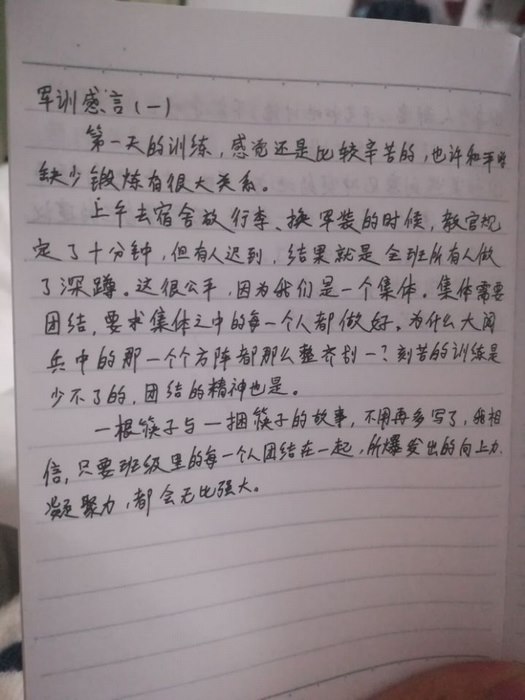 军训感言(一)
第一天的训练,感觉还是比较辛苦的,也许和平时
缺少锻炼有很大关系。
上午去宿舍放行李、换军装的时候,教官规
定了十分钟,但有人迟到,结果就是全班所有人做
了深蹲。这很公平,因为我们是一个集体。集体需要
团结,要求集体之中的每一个人都做好。为什么大阅
兵中的那一个个方阵都那么整齐划一?刻苦的训练是
少不了的,团结的精神也是。
一根筷子与一捆筷子的故事,不用再多写了,我相
信,只要班级里的每一个人团结在一起,所爆发出的向上力、
凝聚力,都会无比强大。